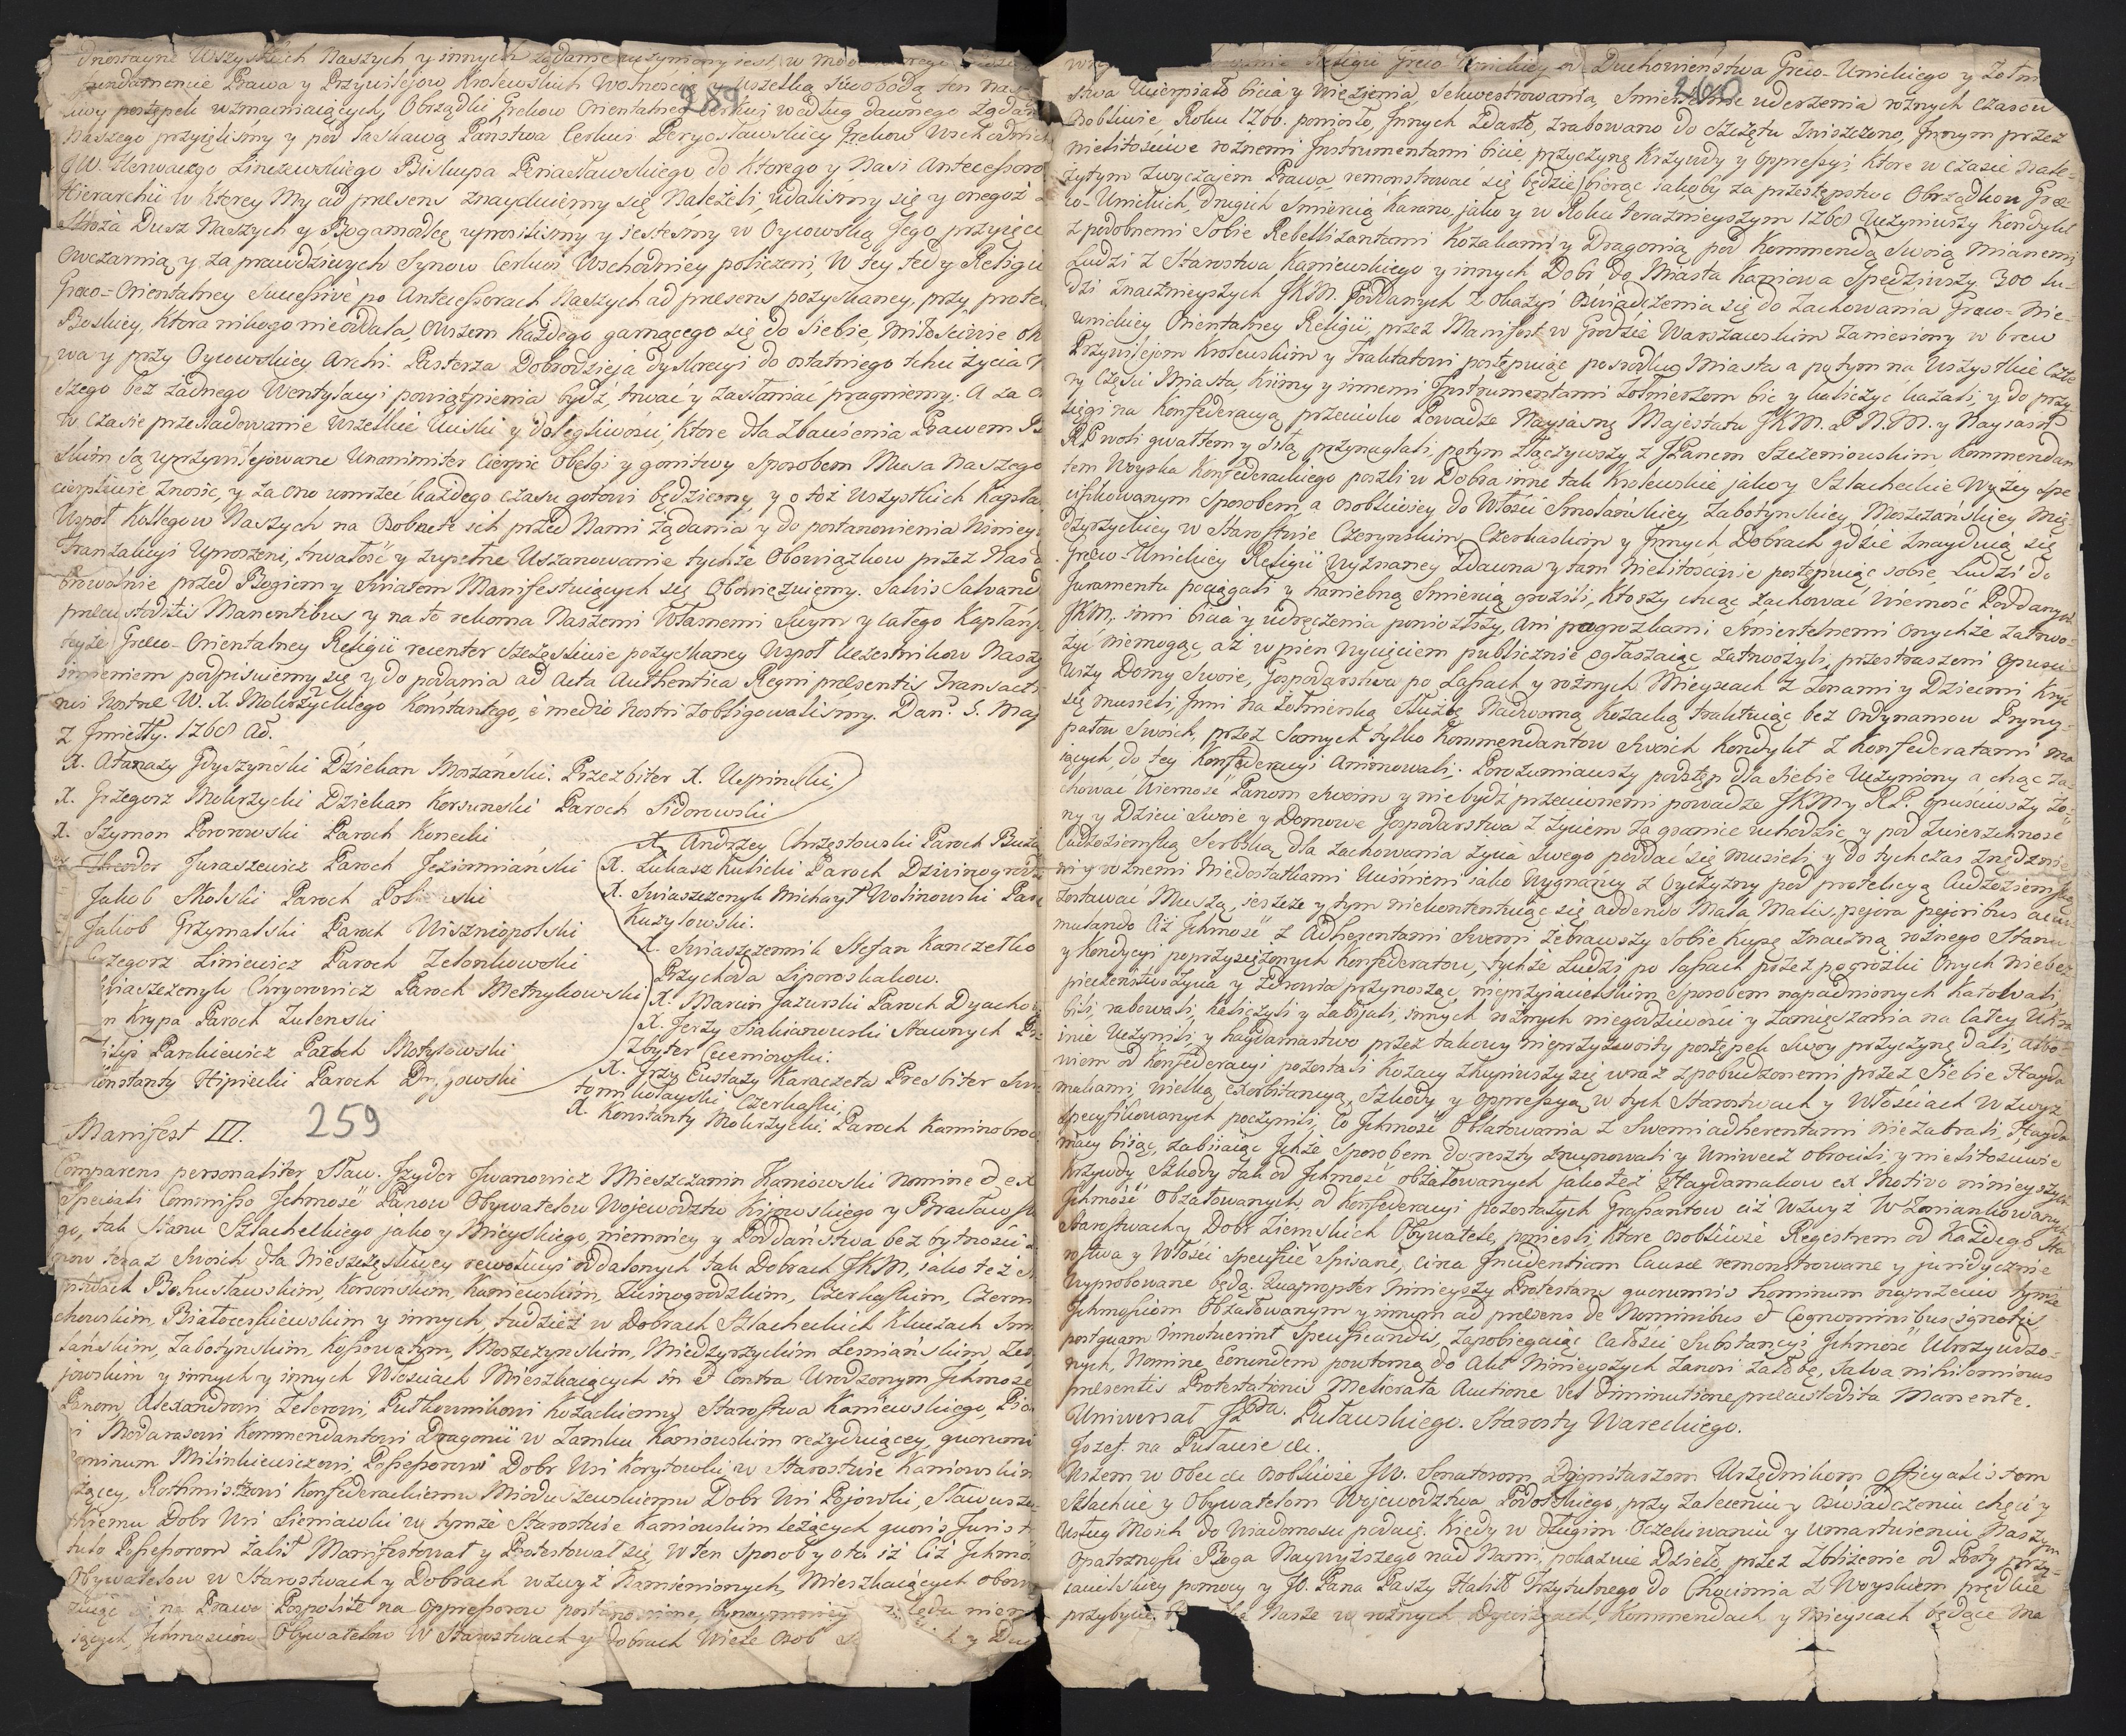 dnostayne Wszystkich Naszych y innych żądanie uczyniony jest w
fundamencie Prawa y Przywilejow Krolewskich Wolnością y Wszelką swobodą ten nasz
259
postępek wzmacniających, Obrządki Grekow Orientalney Cerkwi według dawnego żądania
Naszego przyieliśmy y pod łaskawą Państwa Cerkwi Peryosławskiey Grekow Wschodnich
JW. Herwaczgo Lincewskiego Biskupa Periasławskiego do ktorego y Nasi Antecessoro
Hierarchii w ktorey My ad præsens znayduiemy się Należeli, udaliśmy się y onegoż
Stroża Dusz Naszych y Bogamodlcę uprosiliśmy y jesteśmy w Oycowską Jego przyięci
Owczarnią y za prawdziwych Synow Cerkwi Wschodniey policzeni, W tey tedy Religii
Græco-Orientalney Successivè po Antecessorach Naszych ad præsens pozyskaney, przy prote
Boskiey, ktora nikogo nieoddala, owszem każdego garnącego się do siebie, miłościwie
wa y przy Oycowskiey Archi-Pasterza Dobrodzieja dyskrecyi do ostatniego tchu życia
szego bez żadnego Wentylacyi powiątpienia bydź, trwać y zasłaniać pragniemy. A za
w czasie prześladowanie wszelkie Uciski y dolegliwości, ktore dla zbawienia Prawem
skim są uprzywilejowane Unanimiter cierpić Obelgi y gonitwy sposobem Nasa Naszego
cierpliwie znosić, y za ono umrzeć każdego czasu gotowi będziemy, y o toż wszystkich Kapła
Uspoł Kollegow Naszych na Osobnete ich przed Nami żądania y do postanowienia Niniey
Tranzakcyi Uproszeni, trwałość y zupełne Uszanowanie tychże Obowiązkow przez Nas
browolnie przed Bogiem y Swiatem Manifestuiących się Obowięzuiemy. Salvis Salvand
præcustoditis Manentibus y na to rękoma Naszemi Własnemi Swym y całego Kapłań
teyże Græco-Orientalney Religii recenter szczęśliwie pozyskaney Uspoł Uczestnikow Naszy
imieniem podpisuiemy się y do podania ad Acta Authentica Regni præsentis Transacti
nis Nostræ W. X. Mokrzyckiego Konstantego, è medio Nostri zobligowaliśmy. Dan. 5. Maj
z Smiełły. 1768 ad.
X. Atanazy Gdyszyński Dziekan Moszański. Prezbiter X. Uspinski,
X. Grzegorz Mokrzycki Dziekan Korsunski Paroch Sidorowski
X. Szymon Pororowski Paroch Konecki
X. Theodor Juraszewicz Paroch Jeziorniański
Jakob Skolski Paroch
Jakob Grzymalski Paroch Uiszniopolski
Grzegorz Liniewicz Paroch Zelonkowski
Swiaszczenyk Chryorowicz Paroch Metnykowski
Krypa Paroch Zulenski
Pankiewicz Paroch Motylowski
Konstanty Hipiecki Paroch
X. Andrzey Chrzęstowski Paroch
X. Lukasz Kulicki Paroch Dzwinogrodz
X. Swiaszczenyk Michaył Wolinowski Paro
Kuzylowski.
X. Swiaszczennik Stefan Kanczelko
Przychoda Liporoskakow.
X. Marcin Jazurski Paroch Dyacho
X. Jerzy Siakianowski Stawnych Pr
zbyter Ceceniowski.
X. Jrzy Eustazy Karaczeta Presbiter
tomikołayski Czerkaski
X. Konstanty Mokrzycki. Paroch Kaminobrod
Manifest III. 259
Comparens personaliter Sław. Jzydor Jwanowicz Mieszczanin Kaniowski nomine & ex
Speciali Commisso Jchmość Panow Obywatelow Wojewodztw Kijowskiego y Bracław
go, tak Stanu Szlacheckiego jako y Mieyskiego, niemniey y Poddaństwa bez bytności
now teraz swoich dla Nieszczęśliwey rewolucyi oddalonych tak Dobrach JKM, iako też
Bohusławskim, Korsońskim, Kaniewskim, Zwinogrodzkim, Czerkaskim, Czerm
chowskim, Białocerkiewskim y innych, tudzież w Dobrach Szlacheckich Kluczach Smi
lańskim, Zabotynskim, Kosiowatym, Moszczynskim, Miedzyrzyckim Lesniańskim,
jowskim y innych y innych Włościach Mieszkaiących in & Contra Urodzonym Jchmość
Panom, Alexandrowi Zelerowi, Pułkownikowi Kozackiemu Starostwa Kaniewskiego,
Modarasowi Kommendantowi Dragonii w Zamku Kaniowskim rezyduiącey, quorumi
ominum Milinkiewiczowi Possessorowi Dobr Wsi Korytowki w Starostwie Kaniowskim
żącey, Rothmistrzowi Konfederackiemu Mioduszewskiemu Dobr Wsi Pojowki, Sławusze
kiemu Dobr Wsi Sieniawki w tymże Starostwie Kaniowskim leżących quovis Juris t
tulo Possessorom żalił Manifestował y Protestował się, W ten sposob y oto iż Ciż Jchmo
Obywatelow w Starostwach y Dobrach wzwyż Namienionych, Mieszkaiących obow
na Prawo Pospolite na Oppressorow postanowione, bynaymniey względu niem
iących, Jchmościow Obywatelow w Starostwach y Dobrach Wiele osob
Religii Græco-Unickiey od Duchowieństwa Græco-Unickiego y Zołni
260
stwa Ucierpiało bicia y więzienia, Sekwestrowania, Smiertelnie uderzenia roznych czasow
Osobliwie Roku 1766. poniosło, Jnnych zdarto, zrabowano do szczętu zniszczono, Jnnym przez
nielitościwe rożnemi Jnstrumentami bicie, przyczynę Krzywdy y Oppressyi, ktore w czasie nale-
żytym zwyczajem Prawa remonstrować się będzie, biorąc jakoby za przestępstwo Obrządkow Græ-
co-Unickich, drugich Smiercią karano, jako y w Roku teraznieyszym 1768 Uczyniwszy Kondykt
z podobnemi sobie Rebellizantami Kozakami y Dragonią pod Kommendą Swoią mianemi
Ludzi z Starostwa Kaniewskiego y innych Dobr do Miasta Kaniowa Spędziwszy 300 lu-
dzi znacznieyszych JKM. Poddanych z okazyi oświadczenia się do Zachowania Græco-Nie-
unickiey Orientalney Religii, przez Manifest w Grodzie Warszawskim Zaniesiony w brew
Przywilejom Krolewskim y Traktatowi postępuiąc posrodku Miasta a potym na Wszystkie czte-
ry Części Miasta, Kiimy y innemi Jnstrumentami żołnierzom bić y kaliczyć kazali, y do przy-
sięgi na Konfederacyą przeciwko Powadze Nayjasney Majestatu JKM. a P.N.M. y Nayiaśn:
RP woli gwałtem y siłą przynaglali, potym złączywszy z JPanem Szczeniowskim Kommendan
tem Woyska Konfederackiego poszli w Dobra inne tak Krolewskie jako y Szlacheckie Wyżey spe-
cifikowanym sposobem, a osobliwiey do Włości Smolańskiey, Zabotynskiey Moszczańskiey Mię-
dzyrzyckiey w Starostwie Czerynskim, Czerkaskim y Jnnych Dobrach gdzie znayduią się
Græco-Unickiey Religii wyznaney Zdawna y tam Nielitościwie postępuiąc sobie, Ludzi do
Juramentu pociągali y haniebną Smiercią grozili, Ktorzy chcąc zachować Wierność Poddanych
JKM, inni bicia y udręczenia poniozłszy, Ani pogrozkami Smiertelnemi onychże zatrwo-
żyć niemogąc, aż w pien wycięciem publicznie ogłaszaiąc, zatrwożyli, przestraszeni opusci-
wszy Domy swoie, Gospodarstwa po Lasach y rożnych Mieyscach z Żonami y Dziećmi Kryć
się musieli, Jnni na żołnierską służbę Nadworną Kozacką traktuiąc bez Ordynansow Pryncy-
pałow swoich, przez Samych tylko Kommendantow swoich Kondykt z Konfederatami ma
iących, do tey Konfederacyi Animowali, Porozumiawszy podstęp dla siebie Uczyniony a chcąc za-
chować Wierność Panom swoim y niebydź przeciwnemi powadze JKM y RP. opusciwszy żo-
ny y Dzieci swoie y Domowe Gospodarstwa z życiem za granice uchodzić y pod zwierzchność
Cudzoziemską Serbską dla zachowania życia swego poddać się musieli, y do tych czas znędznie-
ni y rożnemi Niedostatkami Uciśnieni jako wygnańcy z Oyczyzny pod protekcyą Cudzoziemską
zostawać Muszą, jeszcze y tym niekontentuiąc się addendo Mala Malis, pejora pejoribus accu-
mulando Ciż Jchmość z Adherentami swemi zebrawszy sobie kupę znaczną rożnego Stanu
y kondycyi poprzysiężonych Konfederatow, tychże Ludzi po lasach przez pogrożki Onych niebez-
pieczeństwo życia y zdrowia przynosząc, nieprzyiacielskim sposobem napadnionych Katowali,
bili, rabowali, kaliczyli y zabijali, innych rożnych niegodziwości y zamięszania na całey Ukra-
inie Uczynili, y haydamastwo przez takowy nieprzyzwoity postępek Swoy przyczynę dali, albo-
wiem od Konfederacyi pozostali Kozacy skupiwszy się wraz z pobudzonemi przez siebie Hayda
makami, wielką Exorbitancyą, szkody y oppressyą w tych Starostwach y Włościach wzwyż
specyfikowanych poczynili, co Jchmość Oblatowania z Swemi adherentami niezabrali, Hayda-
macy biiąc, zabiiaiąc tymże sposobem do reszty zruynowali y Uniwecz obrocili, y nielitosciwie
krzywdy szkody tak od Jchmość obżałowanych jako też Haydamakow ex Motivo ninieyszych
Jchmość Obżałowanych, od Konfederacyi pozostałych Grassantow ciż wzwyż Wzmiankowanych
Starostwach y Dobr Ziemskich Obywatele, ponieśli, Ktore osobliwie Regestrem od Każdego Sta-
rostwa y Włości specificè Spisanie, circa Jncidentiam Causæ remonstrowane y juridycznie
wyprobowane będą. Quapropter Ninieyszy Protestans quorumvis hominum naprzeciw tymże
Jchmościom Obżałowanym y innym ad præsens de Nominibus & Cognominibus ignotis
postquam innotuerint specificandis, zapobiegaiąc całości Substancyi Jchmość Ukrzywdzo-
nych, Nomine Eorundem powtorną do Akt Ninieyszych zanosi żałobę, Salva nihilominus
præsentis Protestationis Meliorata Auctione vel Diminutione præcustodita Manente.
Uniwersał JPna. Puławskiego. Starosty Wareckiego.
Jozef na Puławie &c.
Wszem w Obec &c osobliwie JW. Senatorom Dignitarzom Urzędnikom officyalistom
Szlachcie y Obywatelom Wojewodztwa Podolskiego, przy Zaleceniu y Oświadczeniu chęci y
Usług Moich do Wiadomości podaię. Kiedy w długim Oczekiwaniu y umartwieniu Naszym
Opatrznosć Boga Naywyższego nad Nami, pokazuie Dzieło przez Zbliżenie od Porty przy-
iacielskiey pomocy y JO. Pana Paszy Halił Trzytulnego do Chocimia z Woyskiem prędkie
przybycie. Nasze w rożnych Dywizyach, Kommendach y Mieyscach będące ma